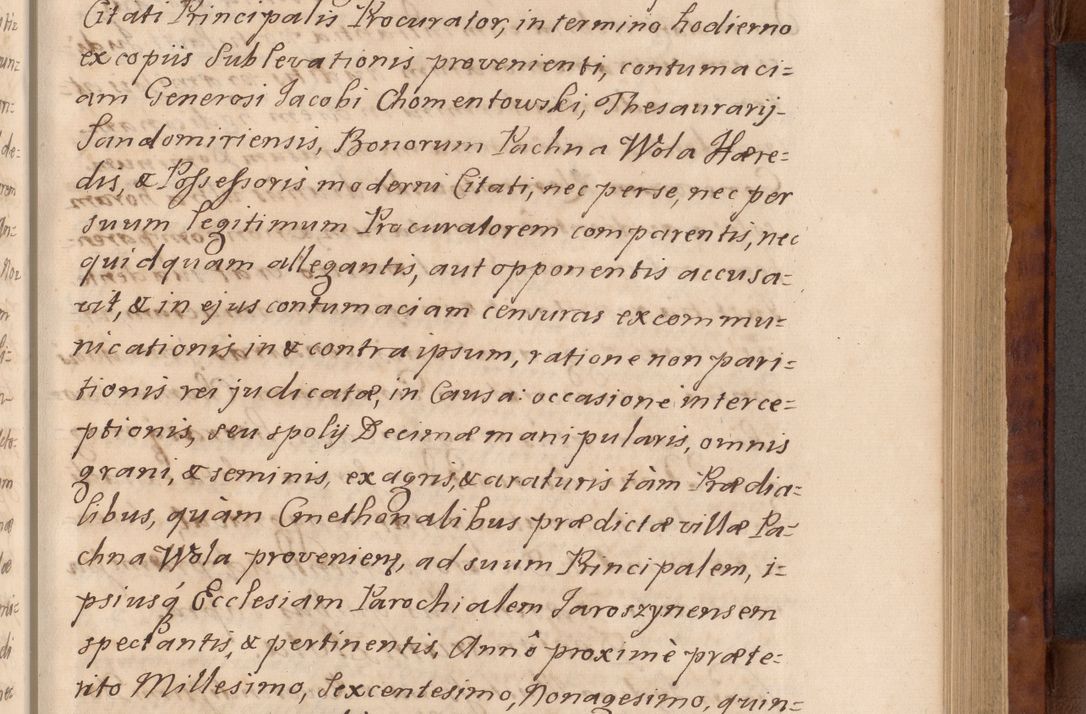 Citati Principalis Procurator, in termino hodierno
ex copiis Sublevationis provenienti, contumaci=
am Generosi Jacobi Chomentowski, Thesaurarij
Sandomiriensis, Bonorum Pachna Wola Hære=
dis, & Possessoris moderni Citati, nec per se, nec per
suum legitimum Procuratorem comparentis, nec
quidquam allegantis, aut opponentis accusa=
vit, & in ejus contumaciam censuras excommu=
nicationis in & contra ipsum, ratione non pari=
tionis rei judicatæ, in Causa occasione interce=
ptionis, seu spolij Decimæ manipularis, omnis
grani, & seminis, ex agris, & araturis tàm Prædia=
libus, quàm Cmethonalibus prædictæ villæ Pa=
chna Wola provenien̄s, ad suum Principalem, i=
psiusq́ Ecclesiam Parochialem Jaroszynensem
spectantis, & pertinentis, Annô proximè præte=
rito Millesimo, Sexcentesimo, Nonagesimo, quin=